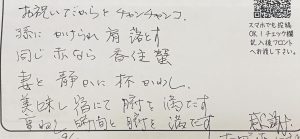 お祝いだからとチャンチャンコ
孫にかけられ肩落とす
同じ赤なら香住蟹
妻と静かに杯かわし
美味し酒にて腑を満たす
言ねし時間と腑を満たす
感謝
スマホでも投稿
OK！チェック欄
記入後フロント
へお渡し下さい。